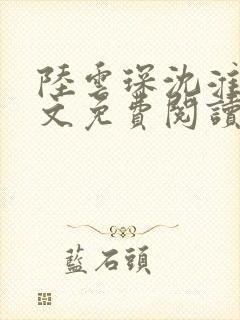 陸雲琛沈淮
文免費閱讀
藍石頭